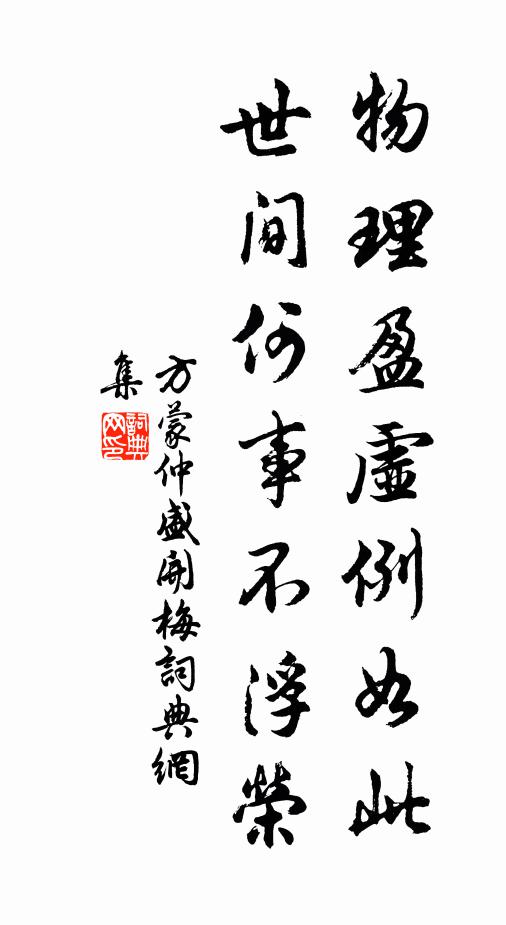 物理盈虛例如此
世间何事不浮榮
方蒙仲盛開梅詞典網
集
詞典
网印